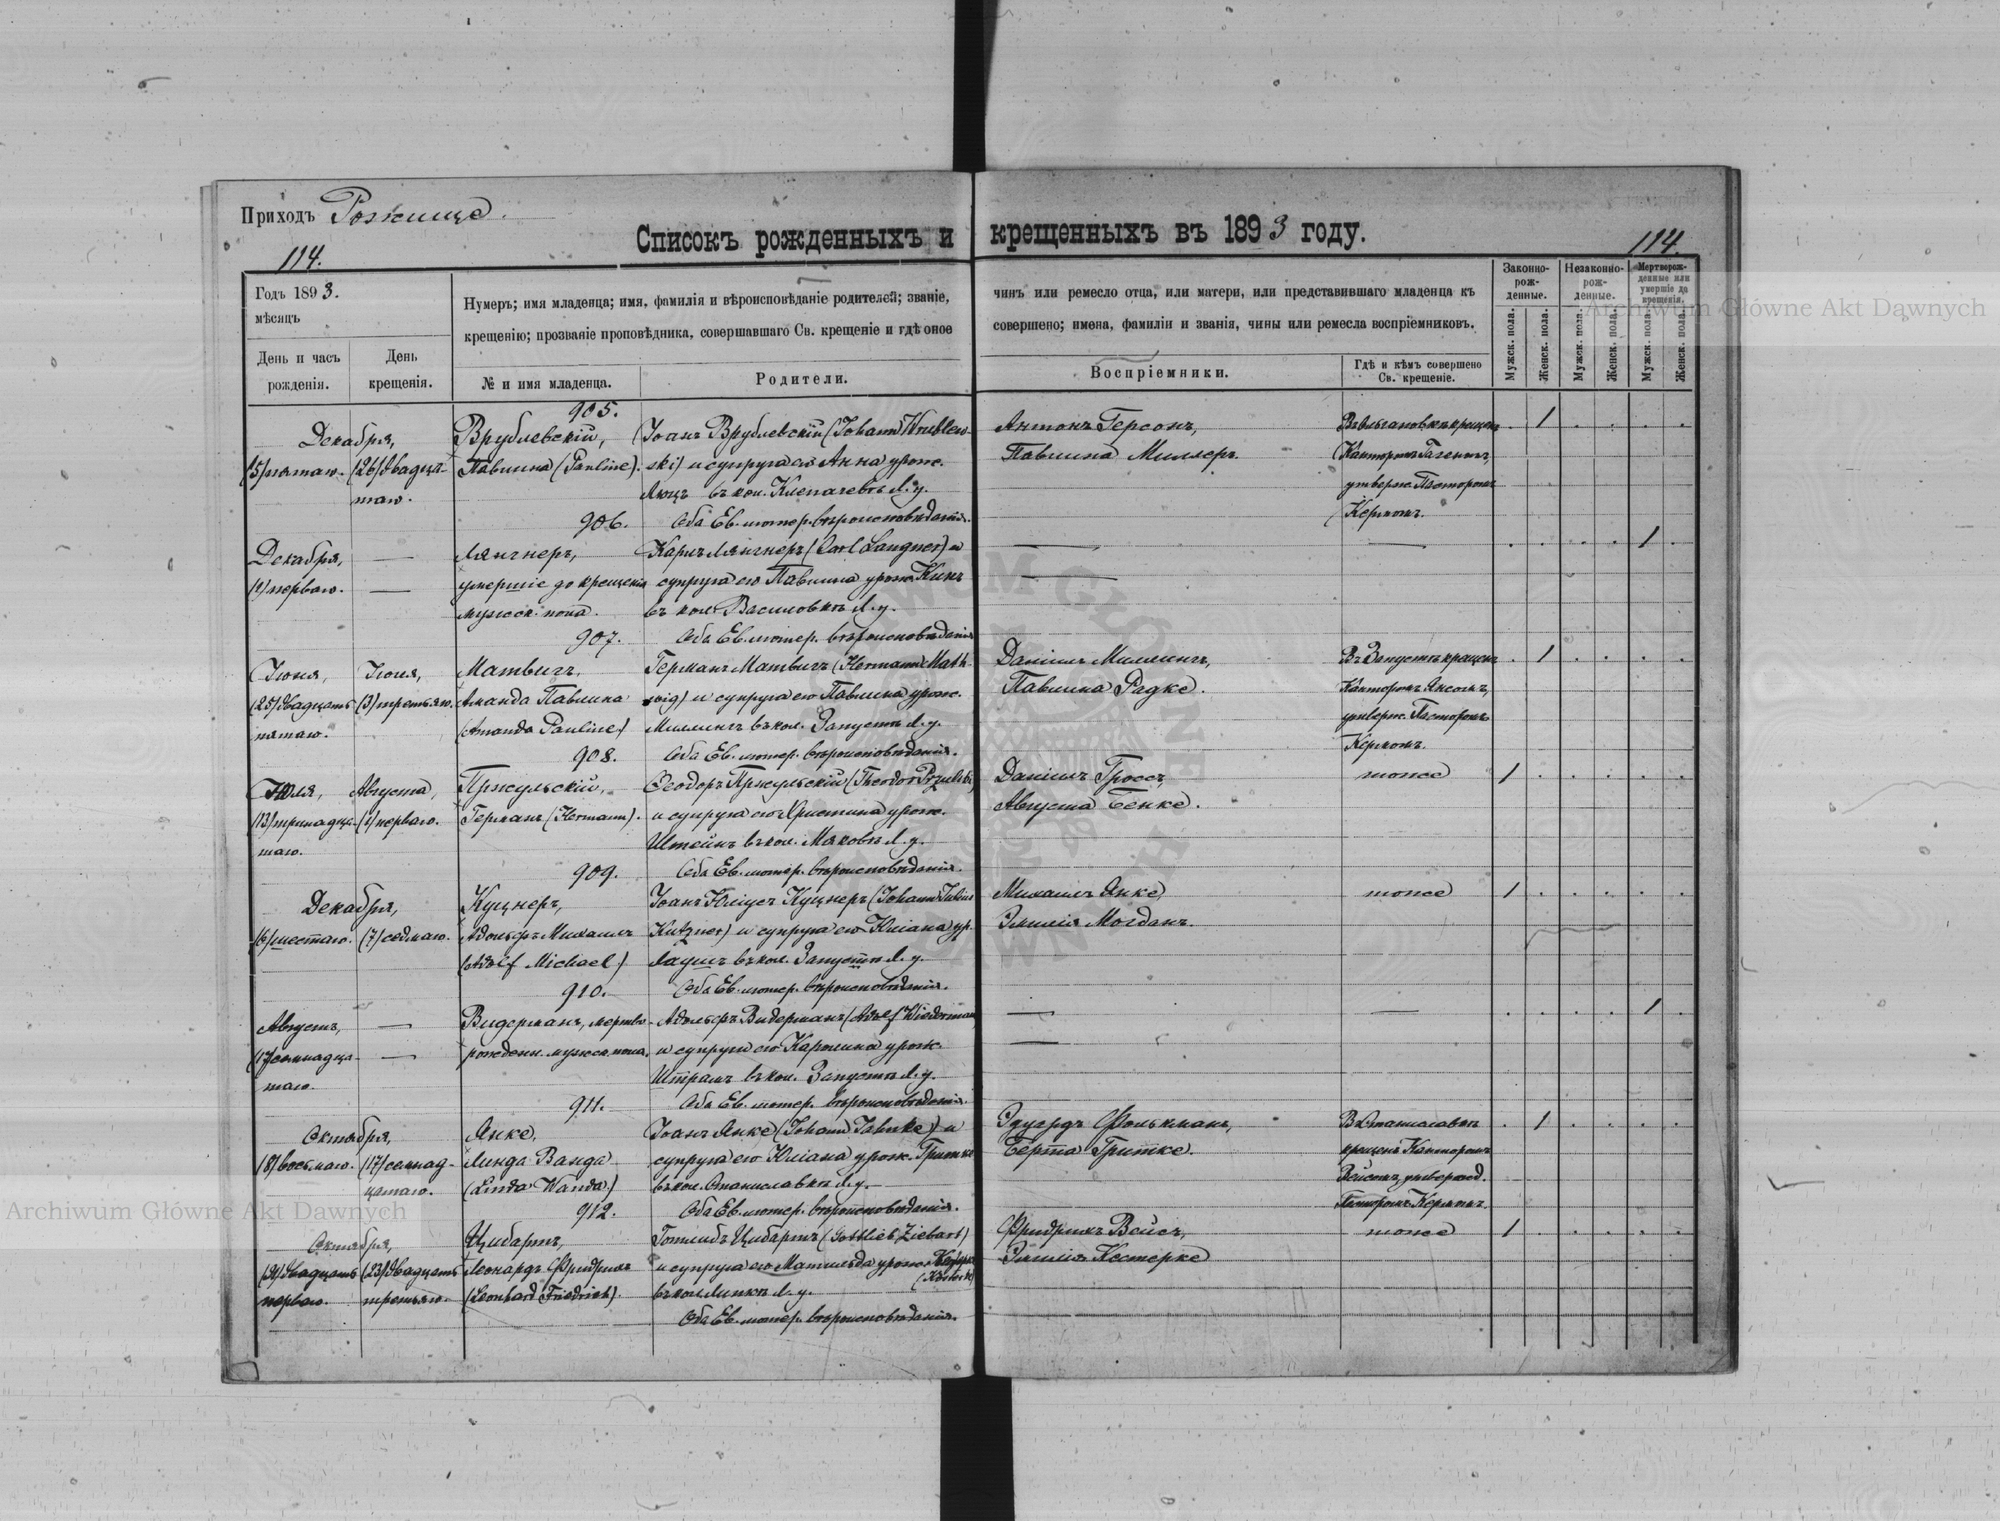 Приходъ Рожище.
114.
Списокъ рожденныхъ и крещенныхъ въ 1893 году.
114.
Годъ 1893.
мѣсяцъ
День и часъ рожденія.
День крещенія.
Нумеръ; имя младенца; имя, фамилія и вѣроисповѣданіе родителей; званіе, чинъ или ремесло отца, или матери, или представившаго младенца къ
крещенію; прозваніе проповѣдника, совершавшаго Св. крещеніе и гдѣ оное совершено; имена, фамиліи и званія, чины или ремесла воспріемниковъ.
№ и имя младенца.
Родители.
Воспріемники.
Гдѣ и кѣмъ совершено Св. крещеніе.
Законно-рож-денные.
Незаконно-рож-денные.
Мертворож-денные или умершіе до крещенія.
Мужск. пола.
Женск. пола.
Мужск. пола.
Женск. пола.
Мужск. пола.
Женск. пола.
905.
Декабря,
(5) пятаго.
(26) двадца-
таго.
Врублевскій,
Павлина (Pauline).
Іоанъ Врублевскій (Johann Wrublew-
ski) и супруга его Анна урож.
въ кол. Клепачевъ Л. у.
Оба Ев. лютер. вѣроисповѣданія.
Антонъ Герсонъ,
Павлина Миллеръ.
крещен
Канторомъ
утверж. Пасторомъ
Керномъ.
1
906.
Декабря,
(1) перваго.
Лянгнеръ,
умершіе до крещенія
мужск. пола.
Карлъ Лянгнеръ (Carl Langner) и
супруга его Павлина урож. Кинъ
въ кол. Василовкѣ Л. у.
Оба Ев. лютер. вѣроисповѣданія
1
907.
Іюня,
(25) двадцать
пятаго.
Іюля,
(3) третьяго.
Матвигъ,
Аманда Павлина
(Amanda Pauline)
Германъ Матвигъ (Hermann Math-
wig) и супруга его Павлина урож.
Миллингъ въ кол. Запустъ Л. у.
Оба Ев. лютер. вѣроисповѣданія.
Даніилъ Миллингъ,
Павлина Радке.
Въ Запустѣ крещен
Канторомъ
утверж. Пасторомъ
Керномъ.
1
908.
Іюля,
(13) тринадца-
таго.
Августа,
(1) перваго.
Германъ (Hermann).
и супруга его Христина урож.
Штейнъ въ кол. Маковъ Л. у.
Оба Ев. лютер. вѣроисповѣданія.
Даніилъ Гроссъ,
Августа Бенке.
тоже
1
909.
Декабря,
(6) шестаго.
(7) седмаго.
Куцнеръ,
Адольфъ Михаилъ
(Adolf Michael)
Іоанъ Юліусъ Куцнеръ (Johann Julius
Kutzner) и супруга его Юліана ур.
въ кол. Запустъ Л. у.
Оба Ев. лютер. вѣроисповѣданія.
Михаилъ Янке,
Эмилія Могданъ.
тоже
1
910.
Августъ,
(17) семнадца-
таго.
Видерманъ, мертво-
рожденн. мужск. пола.
Адольфъ Видерманъ (Adolf Wiederman
и супруги его Каролина урож.
Штрамъ въ кол. Запустъ Л. у.
Оба Ев. лютер. вѣроисповѣданія.
1
911.
Октября,
(8) восьмаго.
(17) семнад-
цатаго.
Янке,
Линда Ванда
(Linda Wanda)
Іоанъ Янке (Johann Jahnke) и
супруга его Юліана урож. Гритке
въ кол. Станиславкѣ Л. у.
Оба Ев. лютер. вѣроисповѣданія.
Эдуардъ Фолькманъ,
Берта Гритке.
Въ Станиславкѣ
крещенъ Канторомъ
Вейсомъ, утвержд.
Пасторомъ Керномъ.
1
912.
Октября,
(21) двадцать
перваго.
(23) двадцать
третьяго.
Цибартъ,
Леонардъ Фридрихъ
(Leonhard Friedrich).
Готлибъ Цибартъ (Gottlieb Ziebart)
и супруга его Матильда урож.
въ кол. Липкѣ Л. у.
Оба Ев. лютер. вѣроисповѣданія.
Фридрихъ Вейсъ,
Эмилія Кестерке
тоже
1
Archiwum Główne Akt Dawnych
Archiwum Główne Akt Dawnych